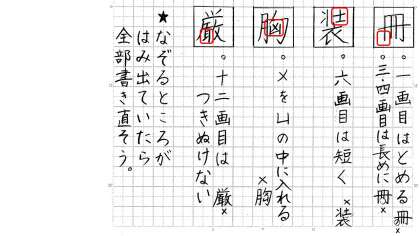 冊
。一画目はとめる冊×
。三・四画目は長めに冊×
装
。六画目は短く ×装
胸
。メを凵の中に入れる
×胸
厳
。十二画目は 厳×
つきぬけない
★なぞるところが
はみ出ていたら
全部書き直そう。